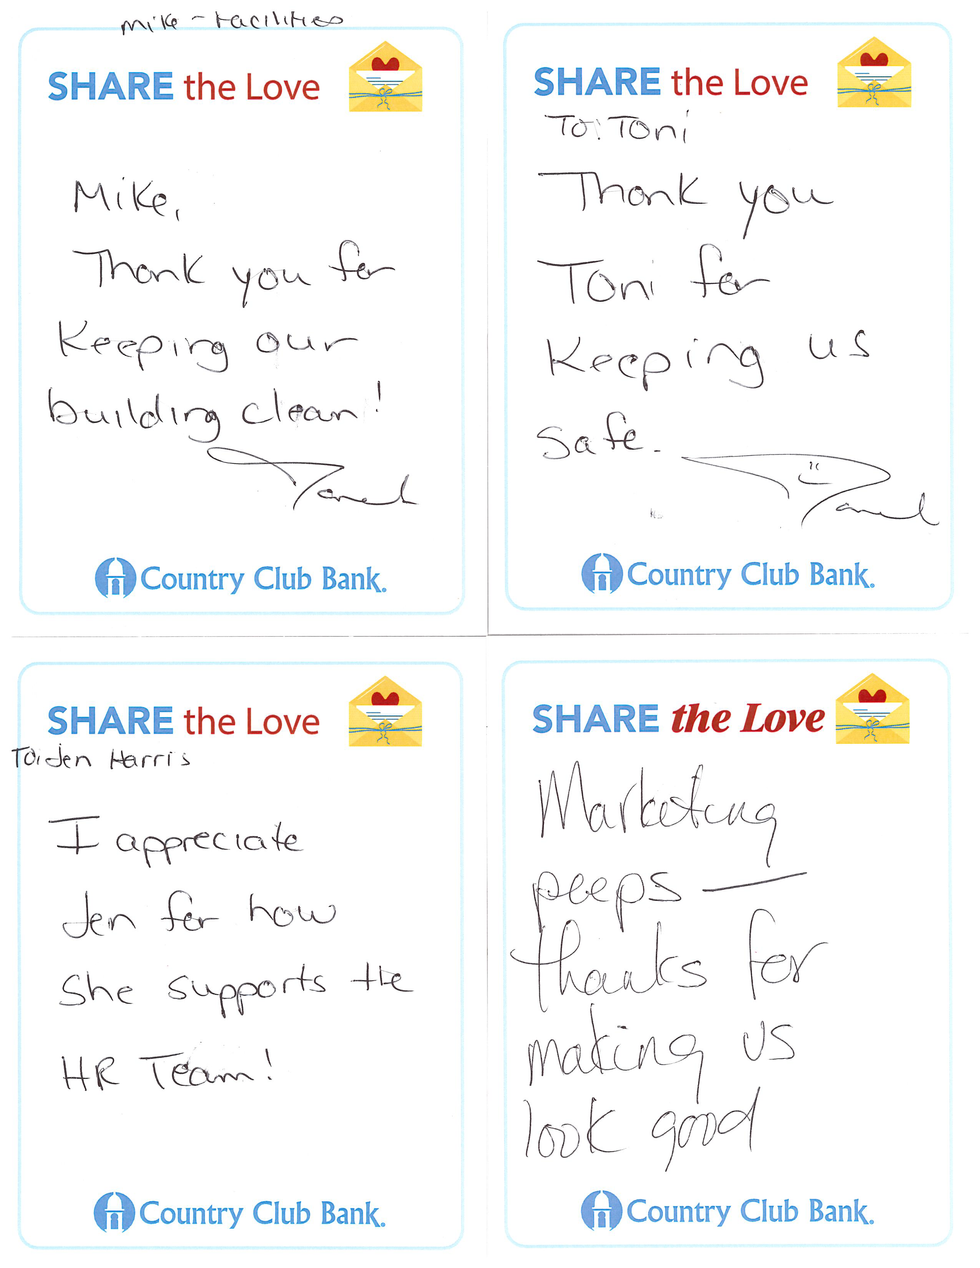 Mike - Facilities
SHARE the Love
Mike,
Thank you for
Keeping our
building clean!
Country Club Bank.
SHARE the Love
To: Toni
Thank you
Toni for
Keeping us
safe.
Country Club Bank.
SHARE the Love
To: Jen Harris
I appreciate
Jen for how
She supports the
HR Team!
Country Club Bank.
SHARE the Love
Marketing
peeps —
thanks for
making us
look good
Country Club Bank.